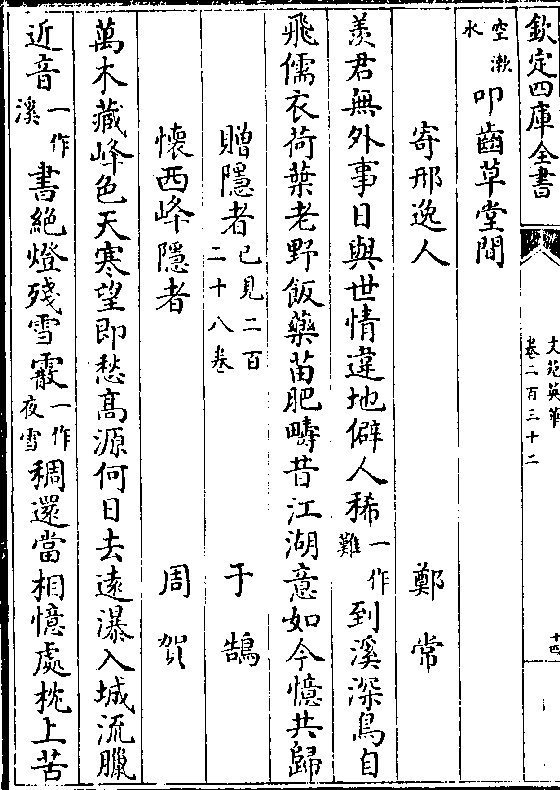 欽定四庫全書
文苑英華
卷二百三十二
十四
空漱水叩齒草堂間
寄邢逸人 鄭常
羡君無外事日與世情違地僻人稀一作難到溪深鳥自
飛儒衣荷葉老野飯藥苗肥疇昔江湖意如今憶共歸
贈隱者已見二百二十八卷 于鵠
懷西峰隱者 周賀
萬木藏峰色天寒望即愁高源何日去遠瀑入城流臘
近音一作溪書絶燈殘雪霰一作夜雪稠還當相憶處枕上苦